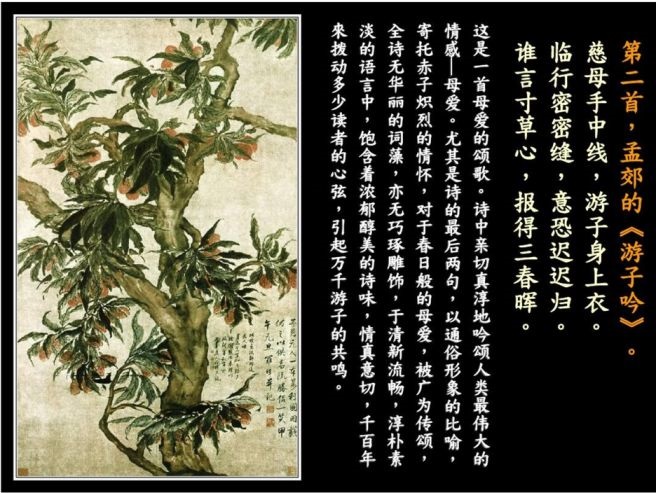 第二首，孟郊的《游子吟》。
慈母手中线，游子身上衣。
临行密密缝，意恐迟迟归。
谁言寸草心，报得三春晖。
这是一首母爱的颂歌。诗中亲切真淳地吟颂人类最伟大的
情感—母爱。尤其是诗的最后两句，以通俗形象的比喻，
寄托赤子炽烈的情怀，对于春日般的母爱，被广为传颂，
全诗无华丽的词藻，亦无巧琢雕饰，于清新流畅，淳朴素
淡的语言中，饱含着浓郁醇美的诗味，情真意切，千百年
來拨动多少读者的心弦，引起万千游子的共鸣。